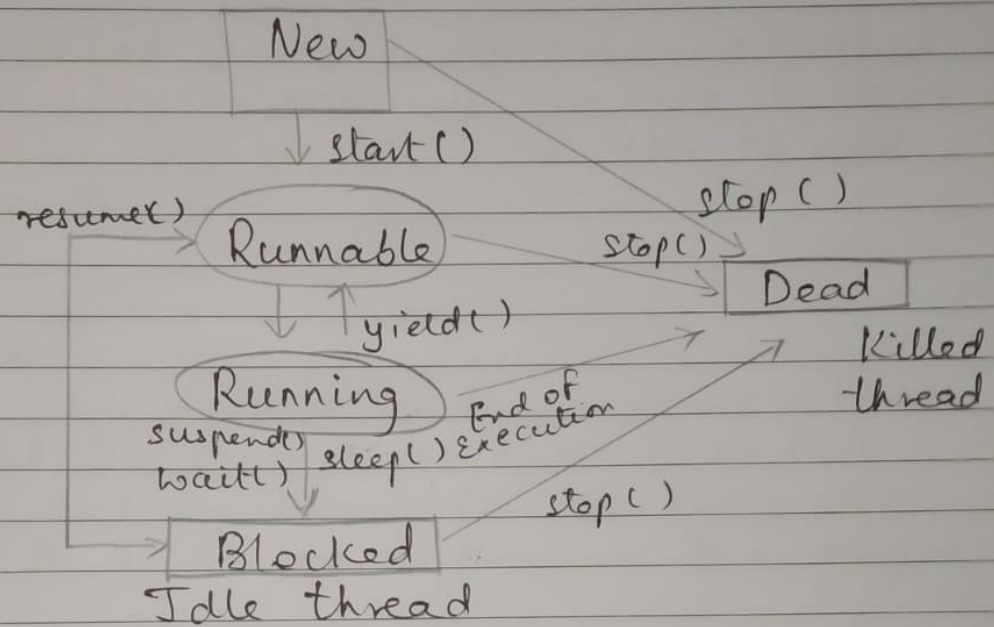 New
start()
resume()
stop()
Runnable
stop()
Dead
yield()
Killed
thread
Running
End of
Execution
suspend()
wait()
sleep()
stop()
Blocked
Idle thread